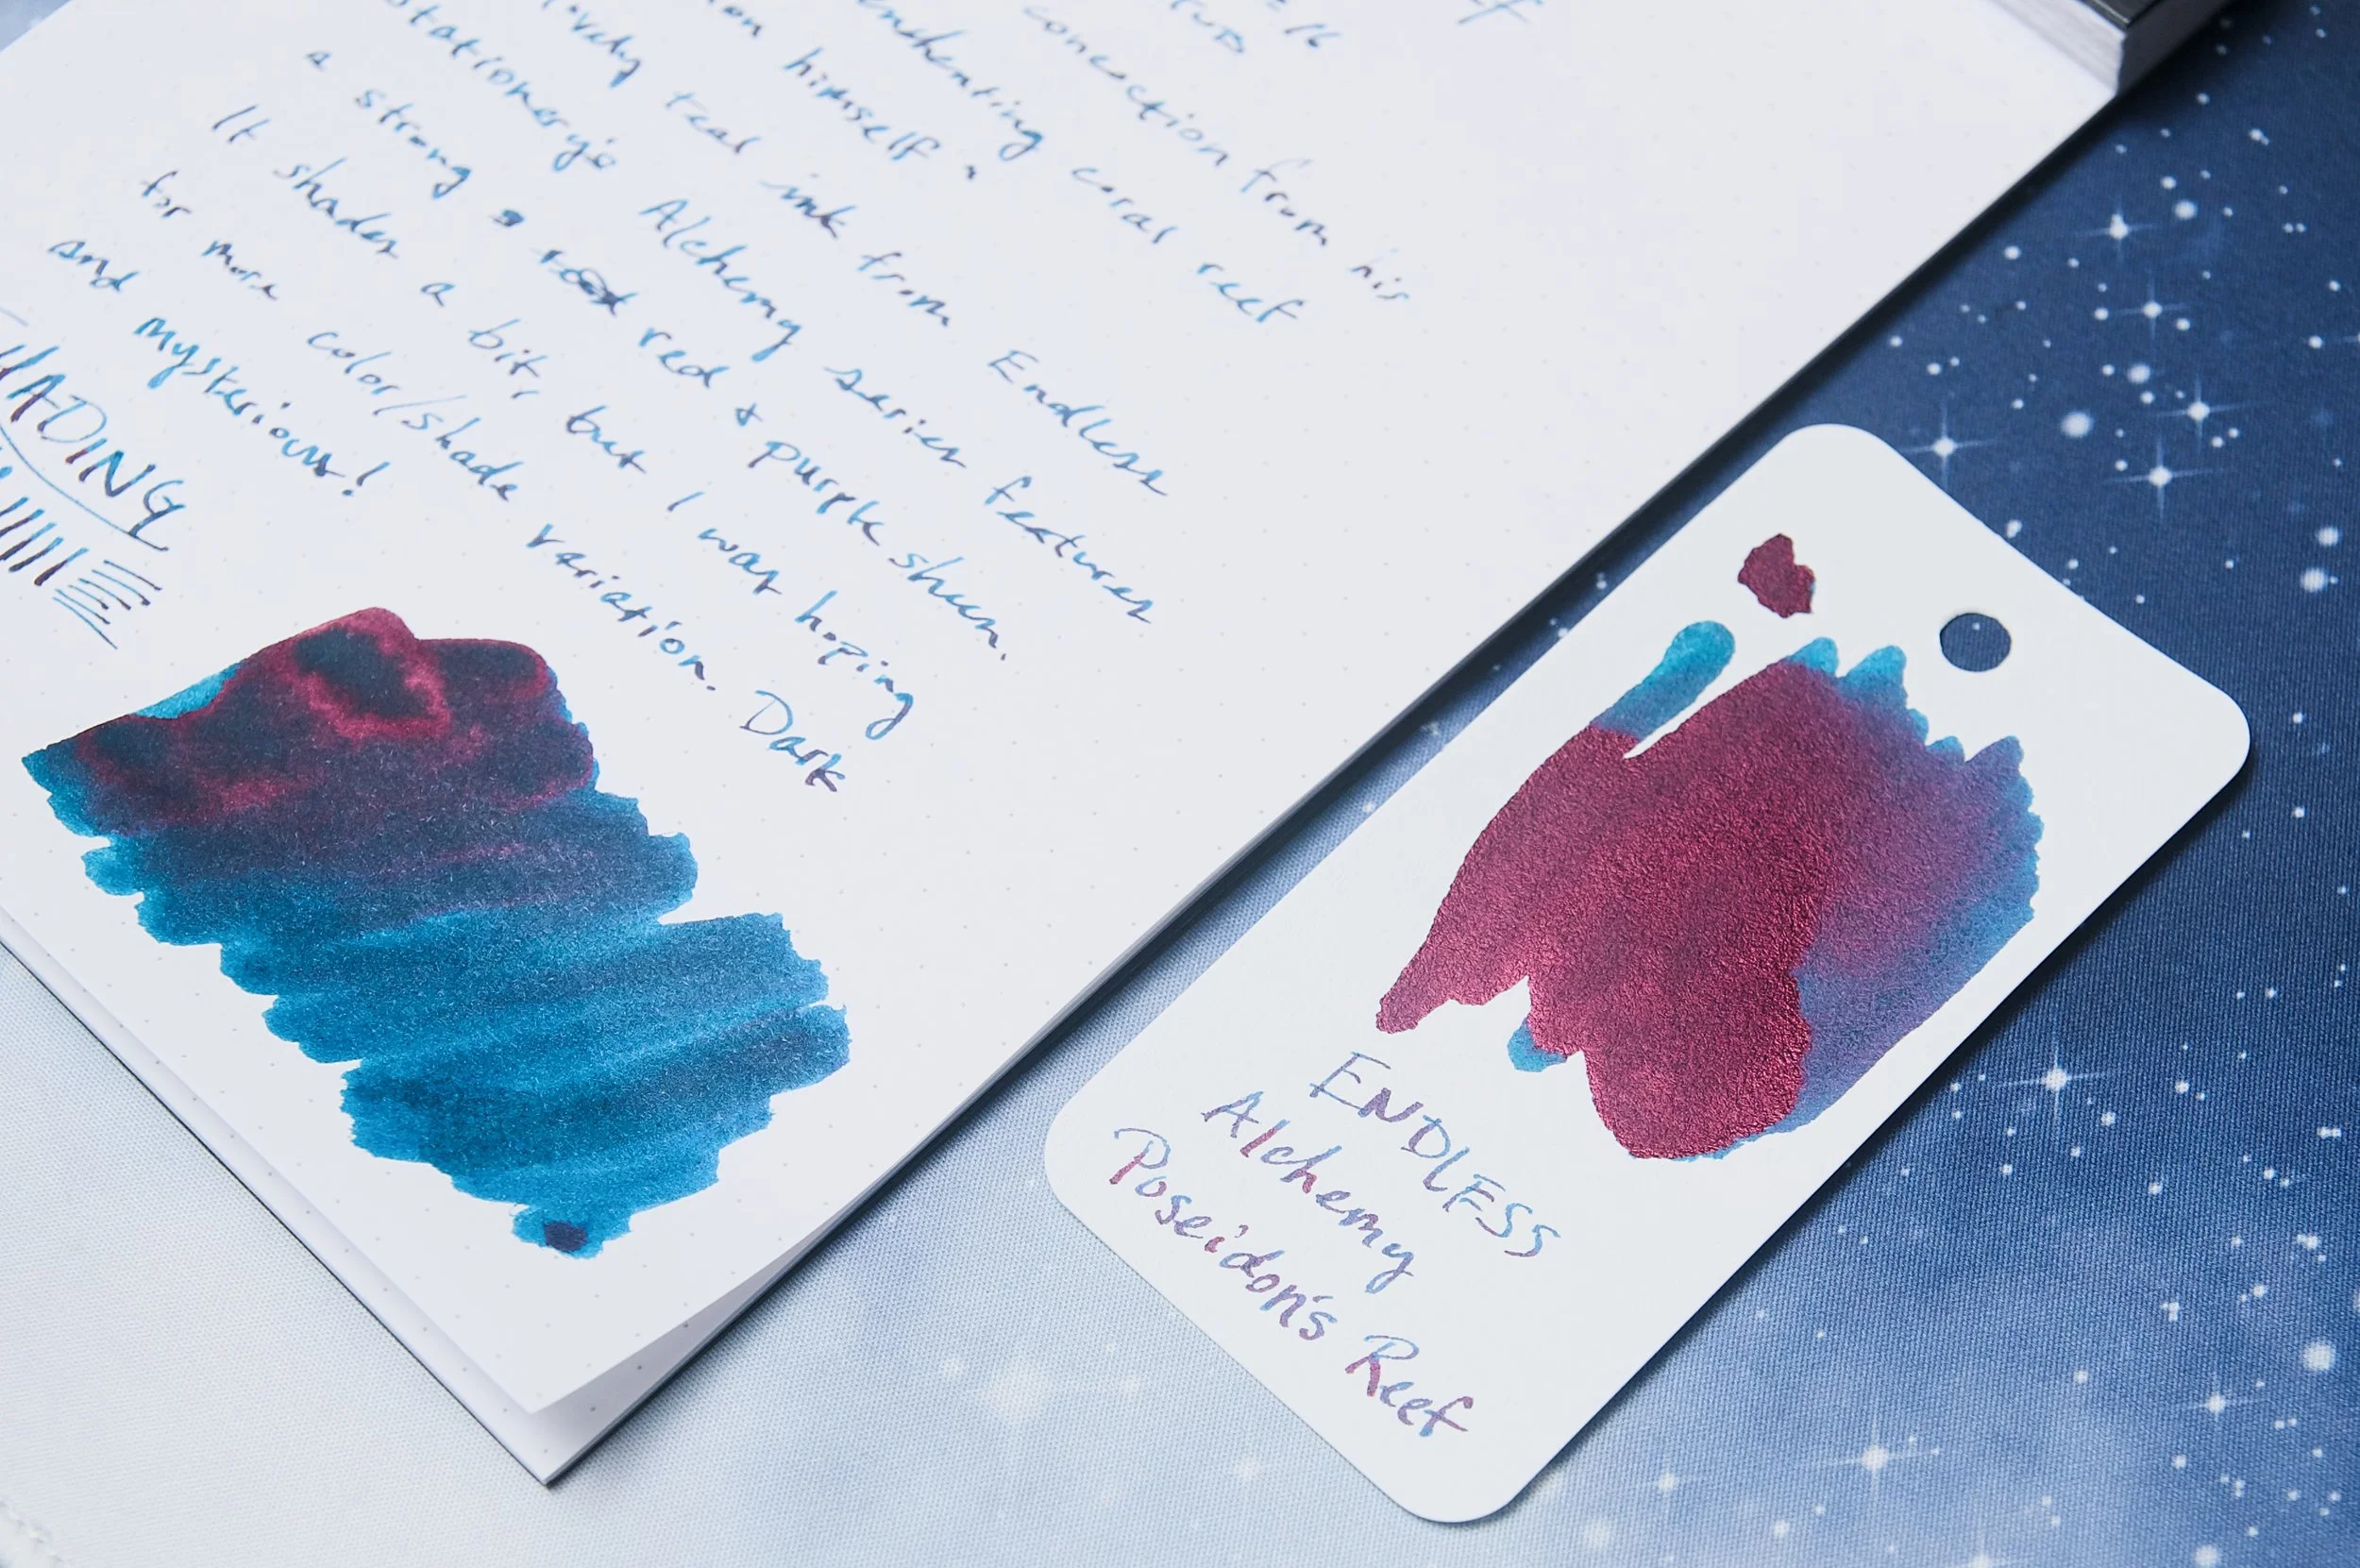 concoction from his
enchanting coral reef
on himself."
vely teal ink from Endless
Stationery's Alchemy series features
a strong red + purple sheen.
It shades a bit, but I was hoping
for more color/shade variation. Dark
and mysterious!
HADING
ENDLESS
Alchemy
Poseidon's Reef